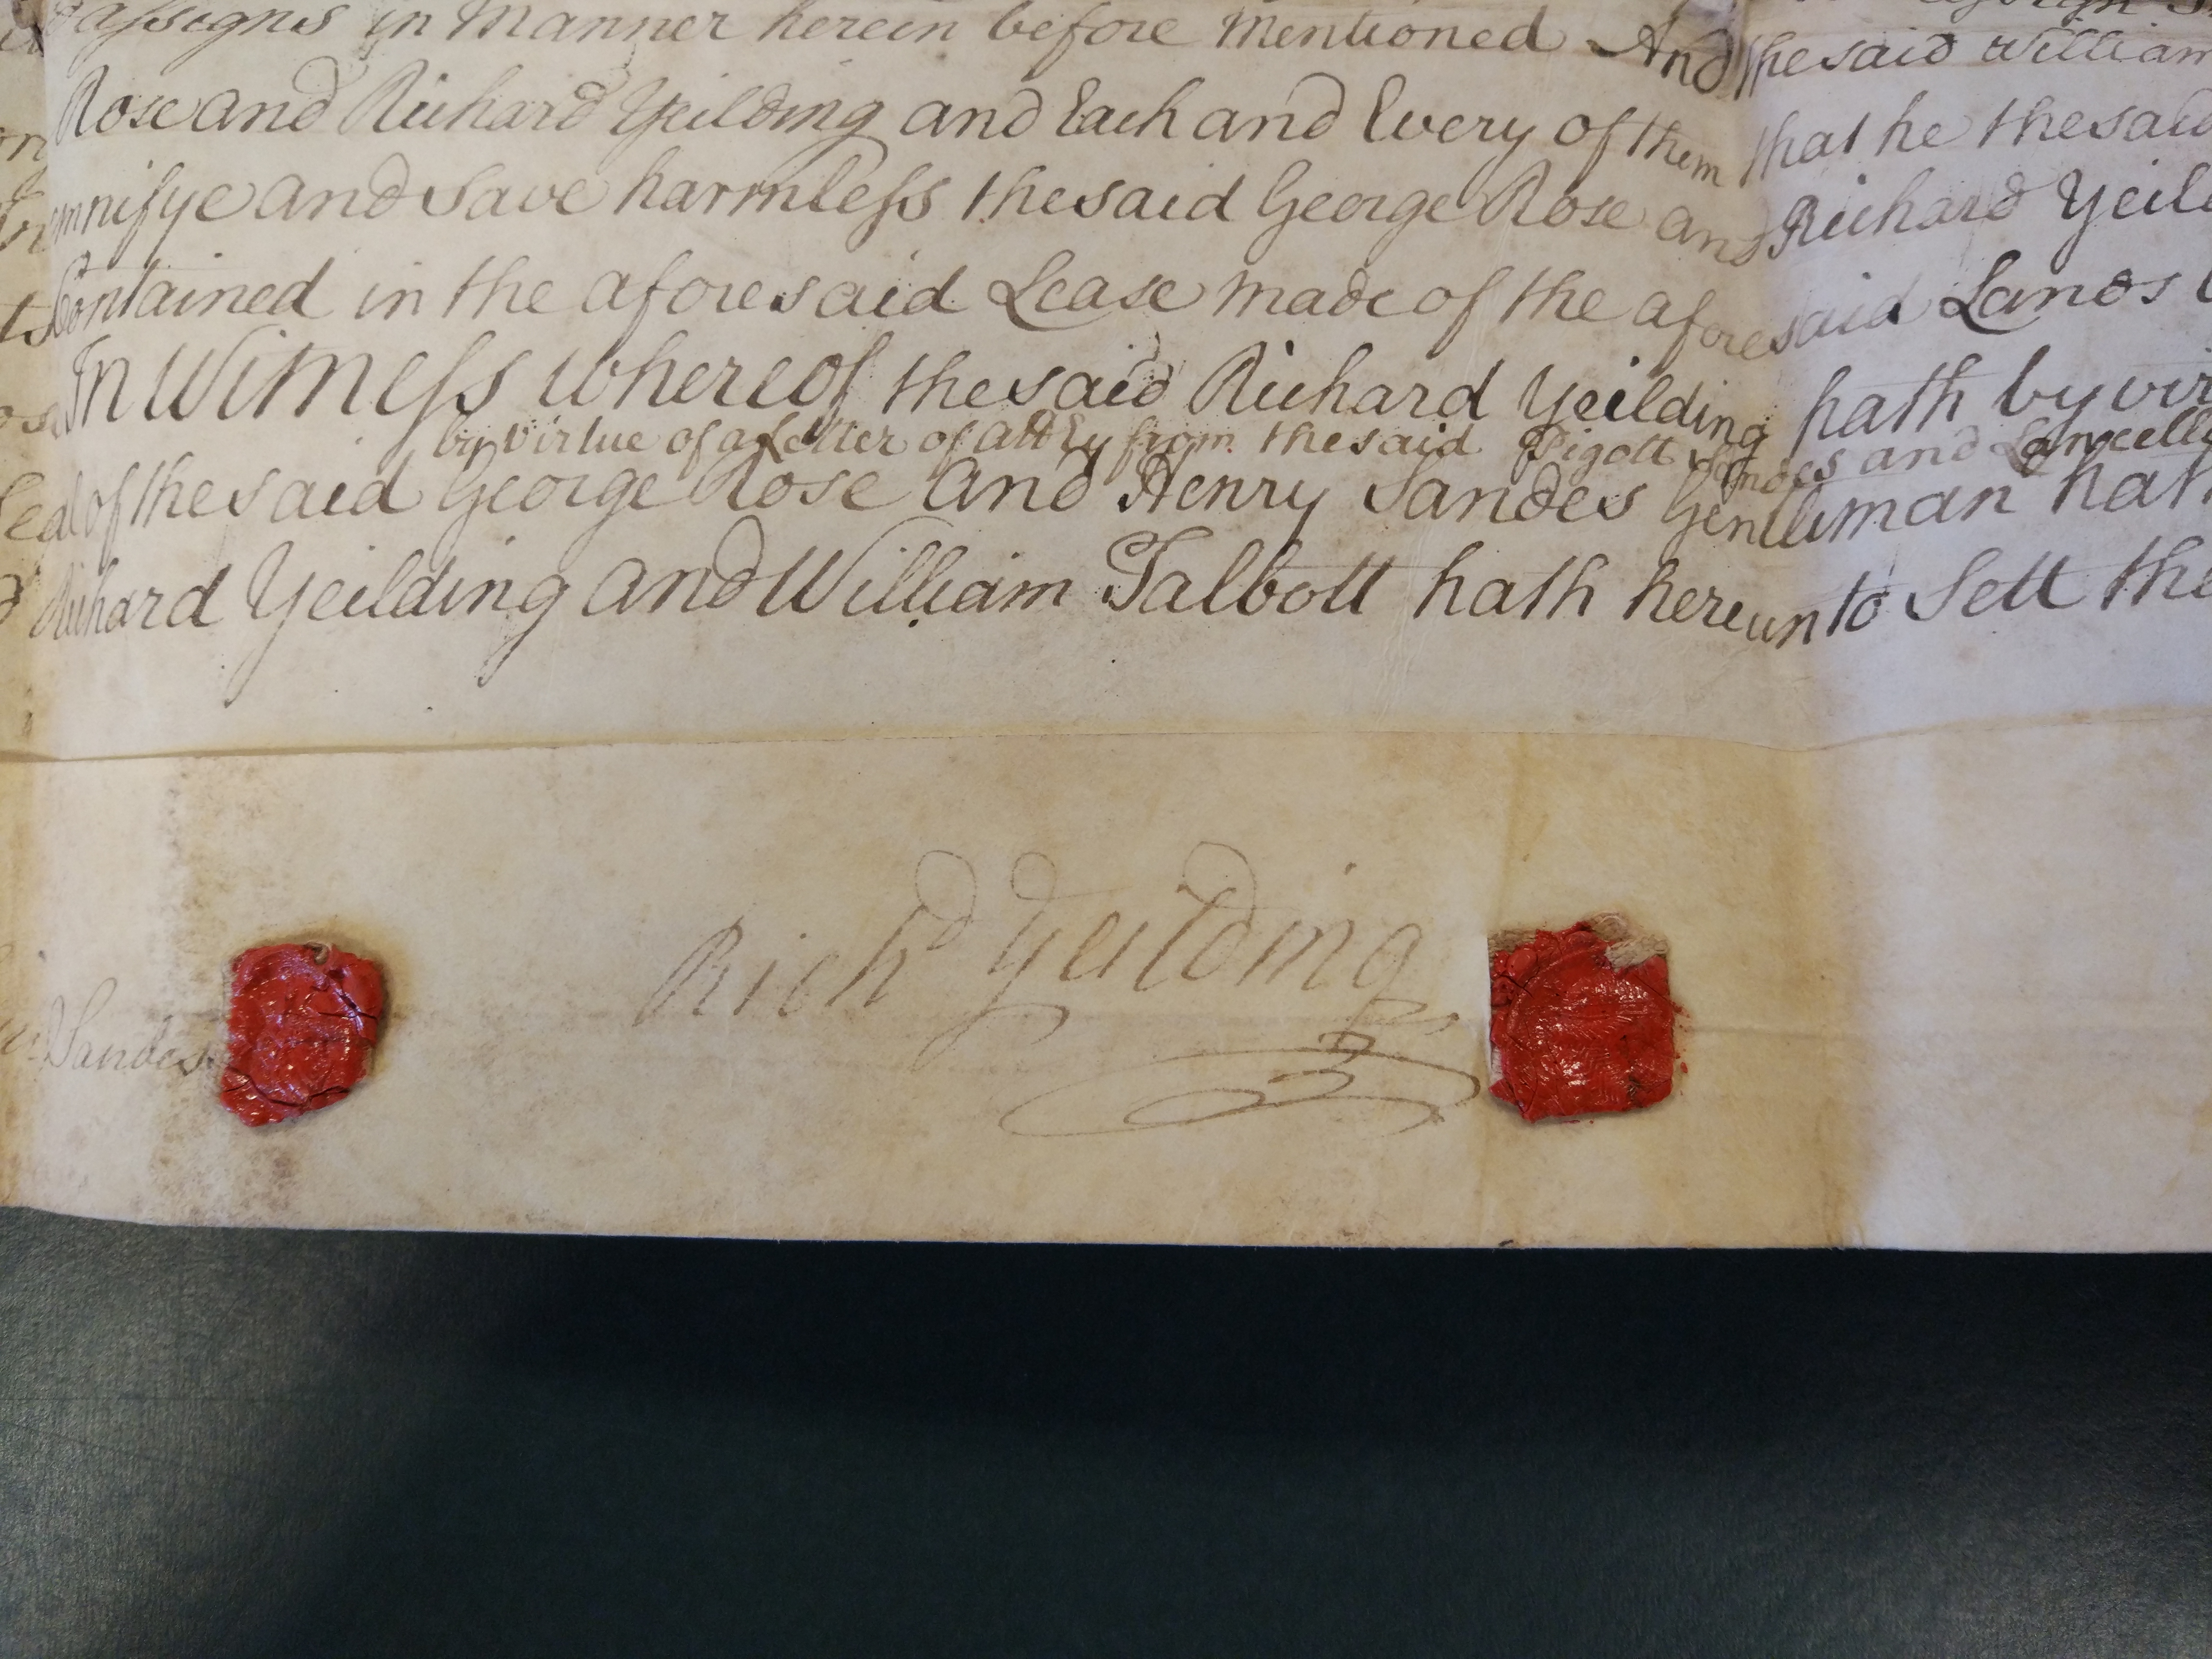 assigns in Manner herein before Mentioned And the said William
Rose and Richard Yeilding and Each and Every of them that he the said
mnifye and Save harmless the said George Rose and Richard Yeil
Contained in the aforesaid Lease made of the aforesaid Lands
In Witness whereof the said Richard Yeilding hath by vir
by virtue of a Letter of Atty from the said Pigott Sandes and Lancello
Seal of the said George Rose and Henry Sandes Gentleman hath
Richard Yeilding and William Talbott hath hereunto Sett the
Richd Yeilding
Sandes